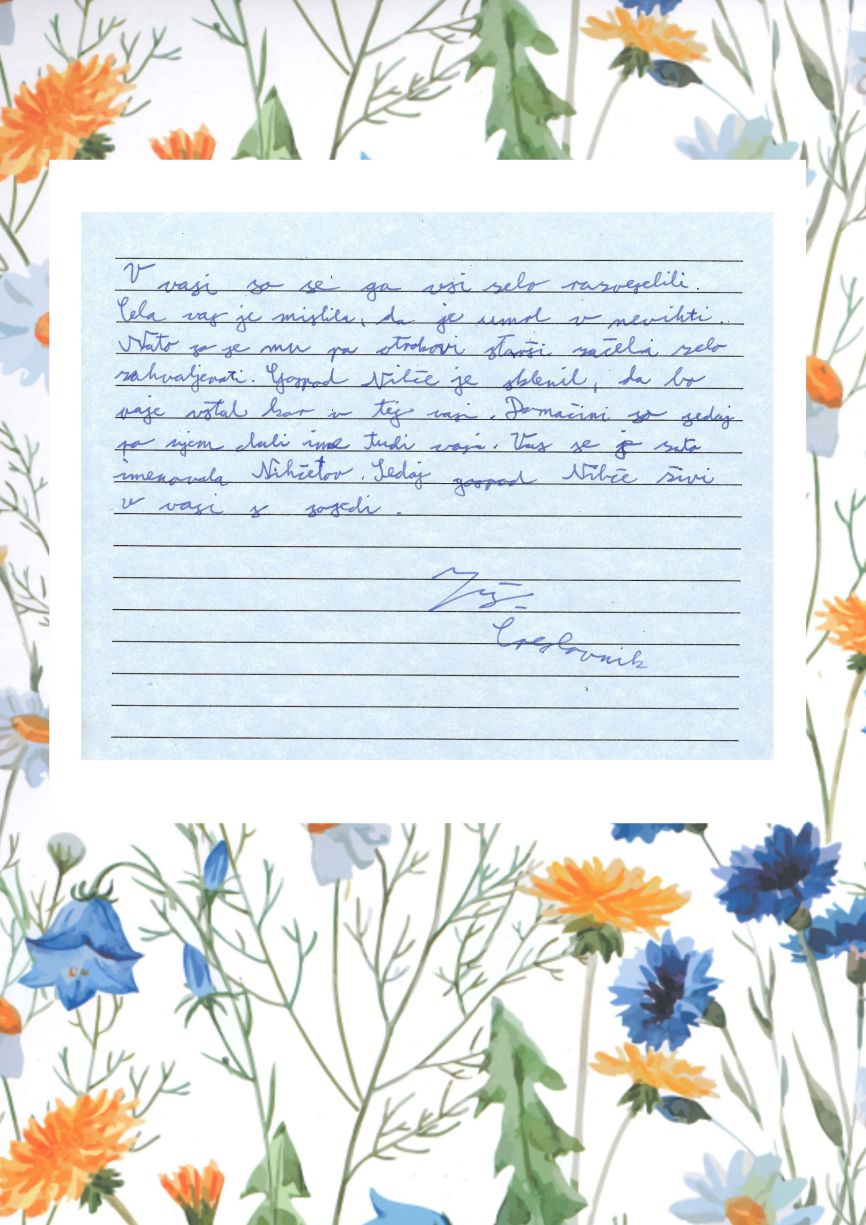 V vasi so se ga vsi zelo razveselili.
Cela vas je mislila, da je umrl v nevihti.
Nato so se mu pa otrokovi starši začeli zelo
zahvaljevati. Gospod Nihče je sklenil, da bo
raje ostal kar v tej vasi. Domačini so sedaj
po njem dali ime tudi vasi. Vas se je zato
imenovala Nihčetov. Sedaj gospod Nihče živi
v vasi s sosedi.
Creslovnik